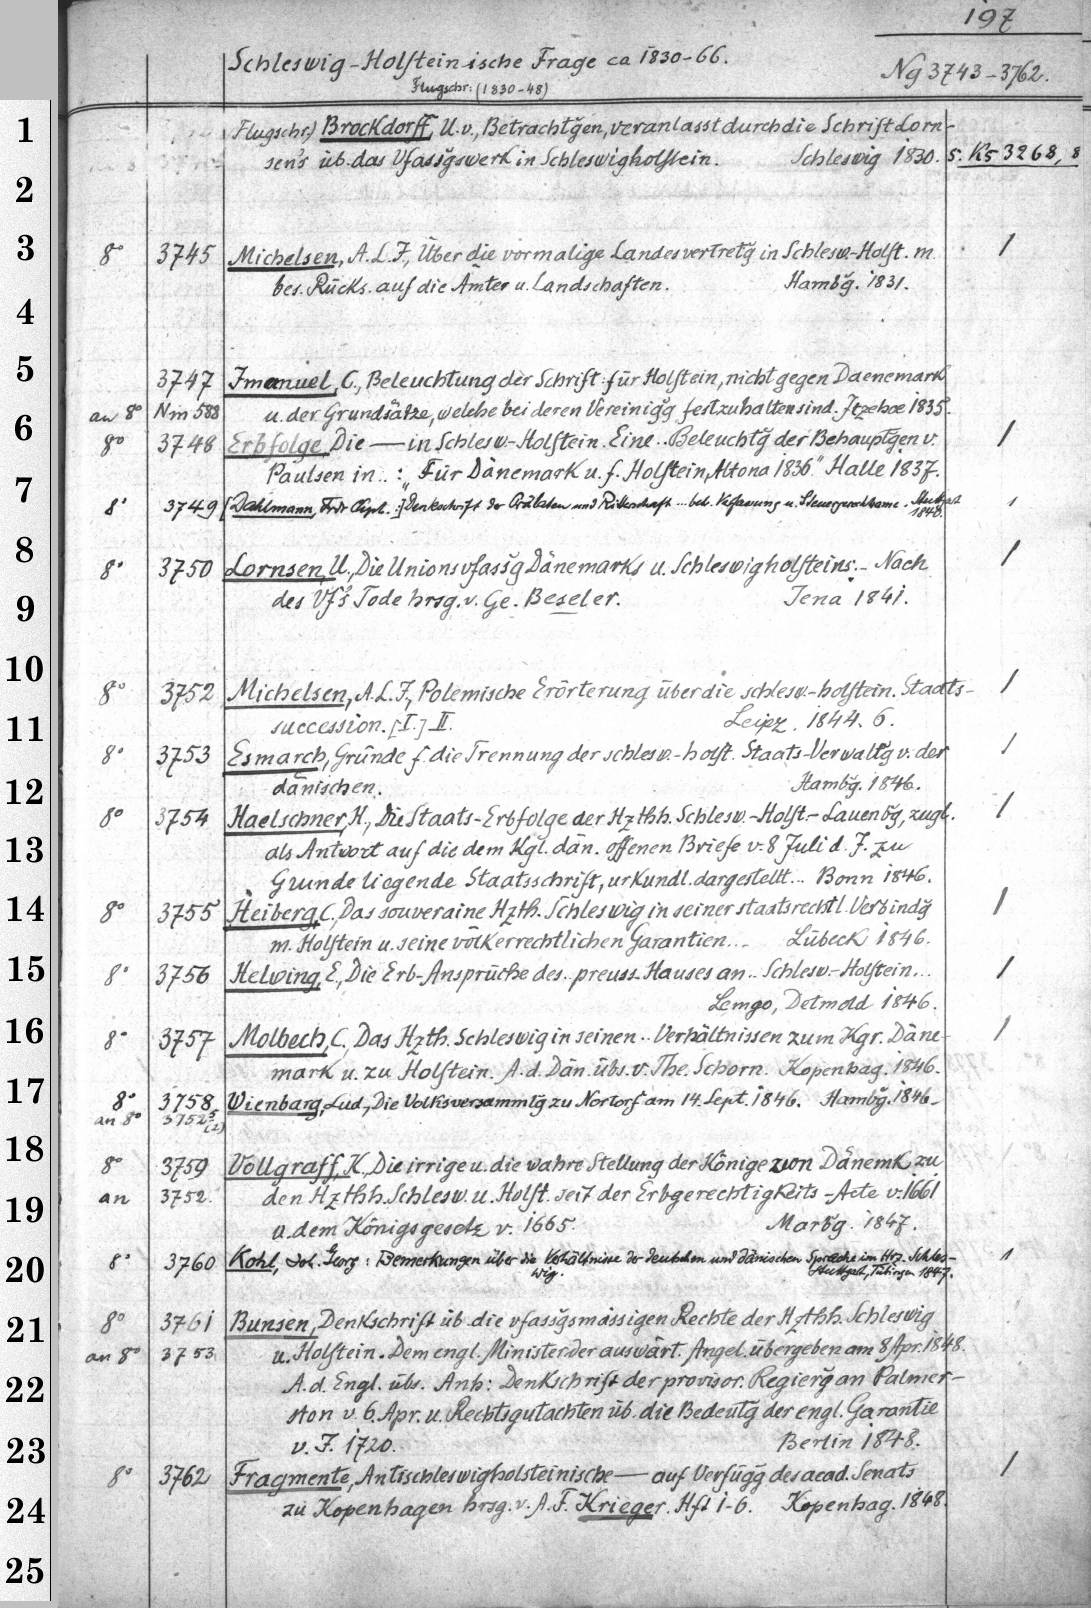 197
Schleswig-Holstein-ische Frage ca 1830-66.
Flugschr: (1830-48)
Ng 3743-3762.
1
Flugschr.) Brockdorff, U.v., Betracht̆gen, veranlasst durch die Schrift Lorn-
sen's üb. das Vfass̆gswerk in Schleswigholstein. Schleswig 1830. s. K5 3268, 8
2
3
8° 3745 Michelsen, A.L.J., Über die vormalige Landesvertret̆g in Schlesw.-Holst. m. /
bes. Rücks. auf die Ämter u. Landschaften. Hamb̆g. 1831.
4
5
3747 Imanuel, C., Beleuchtung der Schrift: für Holstein, nicht gegen Daenemark
an 8° Nm 588 u. der Grundsätze, welche bei deren Vereiniğg festzuhalten sind. Itzehoe 1835.
6
8° 3748 Erbfolge, Die — in Schlesw-Holstein. Eine.. Beleucht̆g der Behaupt̆gen v. /
Paulsen in.. : „Für Dänemark u. f. Holstein, Altona 1836" Halle 1837.
7
8° 3749 [Dahlmann, Frdr Chph. :] Denkschrift der Prälaten und Ritterschaft ... betr. Verfassung u. Steuergerechtsame. Stuttgart /
1840.
8
8° 3750 Lornsen, U., Die Unionsvfass̆g Dänemarks u. Schleswigholsteins. - Nach /
9
des Vf's Tode hrsg. v. Ge. Beseler. Jena 1841.
10
8° 3752 Michelsen, A.L.J., Polemische Erörterung über die schlesw-holstein. Staats- /
11
succession. [I.] II. Leipz. 1844. 6.
8° 3753 Esmarch, Gründe f. die Trennung der schlesw.-holst. Staats-Verwalt̆g v. der /
12
dänischen. Hamb̆g. 1846.
8° 3754 Haelschner, H., Die Staats-Erbfolge der Hzthh. Schlesw.-Holst.-Lauenb̆g, zugl. /
13
als Antwort auf die dem Kgl. dän. offenen Briefe v. 8 Juli d. J. zu
Grunde liegende Staatsschrift, urkundl. dargestellt... Bonn 1846.
14
8° 3755 Heiberg, C., Das souveraine Hzth. Schleswig in seiner staatsrechtl. Verbind̆g /
m. Holstein u. seine völkerrechtlichen Garantien... Lübeck 1846.
15
8° 3756 Helwing, E., Die Erb-Ansprüche des.. preuss. Hauses an.. Schlesw.-Holstein... /
Lemgo, Detmold 1846.
16
8° 3757 Molbech, C., Das Hzth. Schleswig in seinen.. Verhältnissen zum Kgr. Däne- /
mark u. zu Holstein. A. d. Dän. übs. v. The. Schorn. Kopenhag. 1846.
17
8° 3758 Wienbarg, Lud., Die Volksversamml̆g zu Nortorf am 14. Sept. 1846. Hamb̆g. 1846.
an 8° 3752 5 (2)
18
8° 3759 Vollgraff, K., Die irrige u. die wahre Stellung der Könige von Dänemk. zu
an 3752. den Hzthh. Schlesw. u. Holst. seit der Erbgerechtigkeits-Acte v. 1661
19
u. dem Königsgesetz v. 1665. Marb̆g. 1847.
20
8° 3760 Kohl, Joh. Georg : Bemerkungen über die Verhältnisse der deutschen und dänischen Sprache im Hrz. Schles- /
wig. Stuttgart, Tübingen 1847.
21
8° 3761 Bunsen, Denkschrift üb. die vfass̆gsmässigen Rechte der Hzthh. Schleswig
an 8° 3753 u. Holstein. Dem engl. Minister der auswärt. Angel. übergeben am 8 Apr. 1848.
22
A. d. Engl. übs. Anh: Denkschrift der provisor. Regier̆g an Palmer-
ston v. 6. Apr. u. Rechtsgutachten üb. die Bedeut̆g der engl. Garantie
23
v. J. 1720. Berlin 1848.
8° 3762 Fragmente, Antischleswigholsteinische — auf Verfüğg des acad. Senats /
24
zu Kopenhagen hrsg. v. A. F. Krieger. Hft 1-6. Kopenhag. 1848.
25